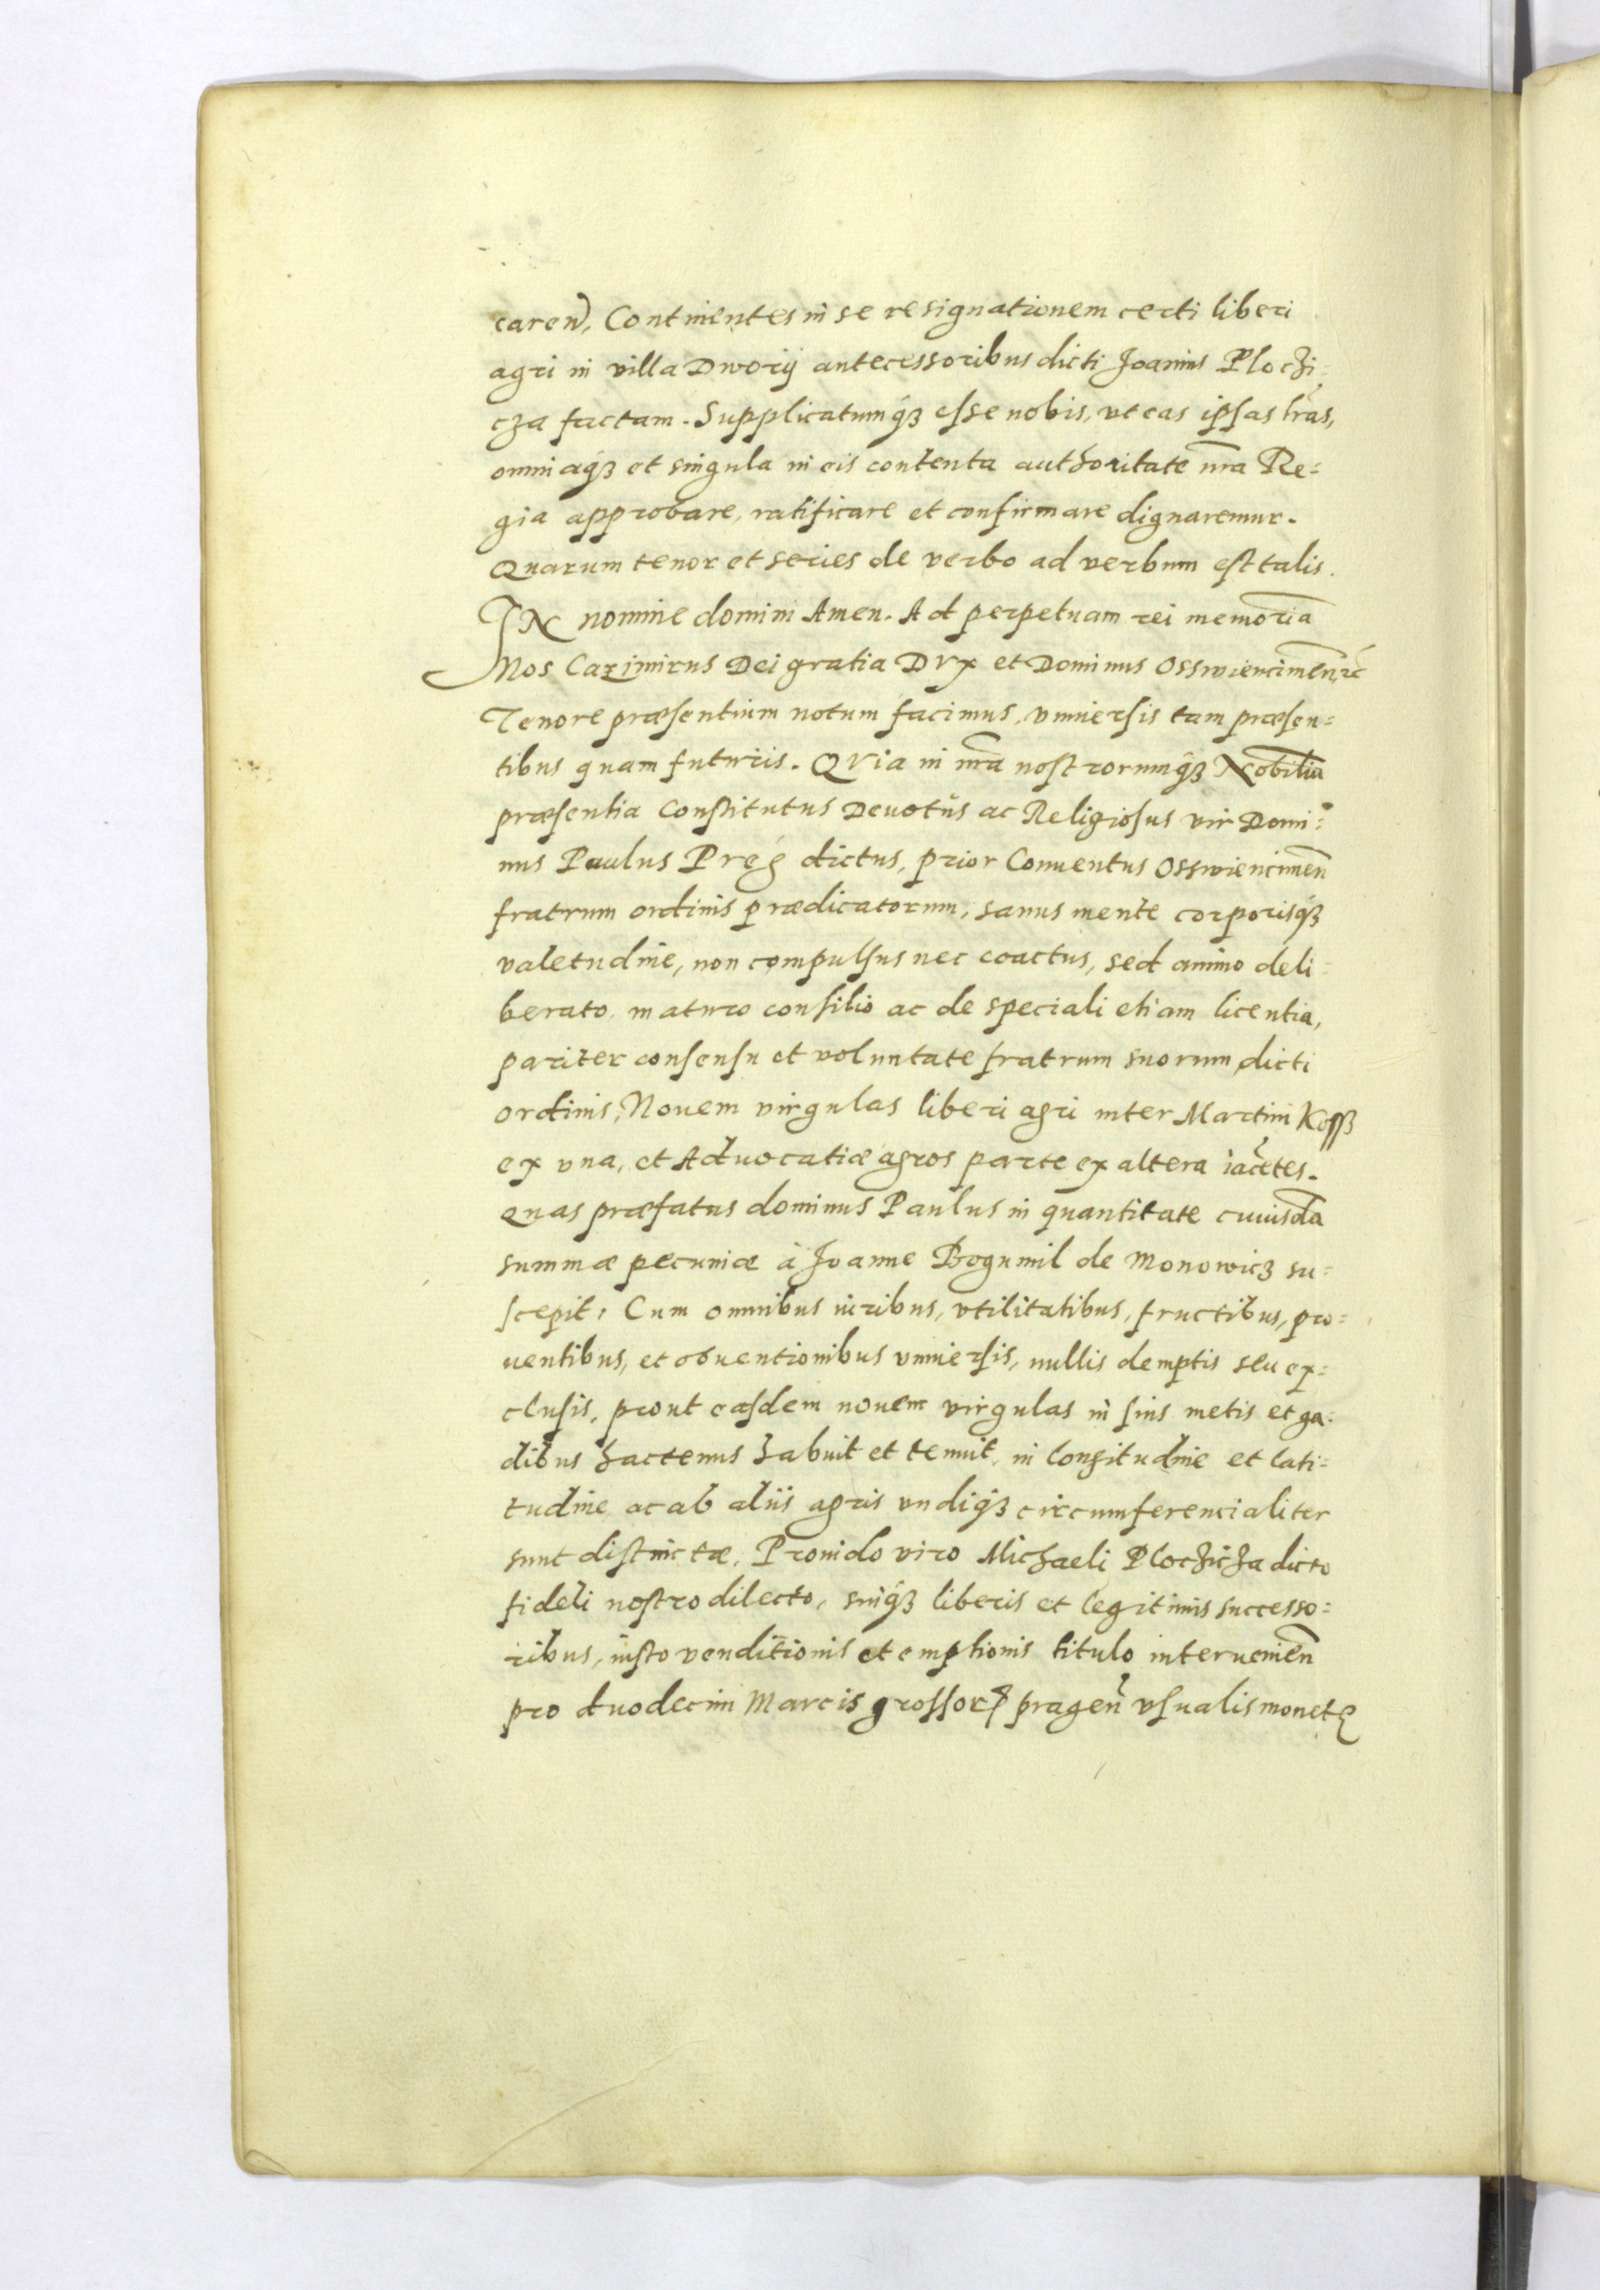 caren̄, Continentes in se resignationem certi liberi
agri in villa Dworij antecessoribus dicti Joannis Ploczi=
cza factam. Supplicatumq́ꝫ esse nobis, vt eas ipsas lr̄as,
omniaq́ꝫ et singula in eis contenta authoritate nr̄a Re=
gia approbare, ratificare et confirmare dignaremur.
Quarum tenor et series de verbo ad verbum est talis.
IN nomine domini Amen. Ad perpetuam rei memoriā
Nos Cazimirus Dei gratia Dvx et Dominus Osswiencimen̄ ꝛc̄
Tenore præsentium notum facimus, vniuersis tam præsen=
tibus quam futuris. QVia in nr̄a nostrorumq́ꝫ Nobiliū
præsentia Constitutus Deuotus ac Religiosus vir Domi=
nus Paulus Preg dictus, prior Conuentus Osswiencimen̄
fratrum ordinis prædicatorum, sanus mente corporisq́ꝫ
valetudine, non compulsus nec coactus, sed animo deli=
berato, maturo consilio ac de speciali etiam licentia,
pariter consensu et voluntate fratrum suorum dicti
ordinis, Nouem virgulas liberi agri inter Martini Koss
ex vna, et Aduocatiæ agros parte ex altera iacētes.
Quas præfatus dominus Paulus in quantitate cuiusdā
summæ pecuniæ à Joanne Bogumil de Monowicz su=
scepit, Cum omnibus iuribus, vtilitatibus, fructibus, pro=
uentibus, et obuentionibus vniuersis, nullis demptis seu ex=
clusis, prout easdem nouem virgulas in suis metis et ga=
dibus hactenus habuit et tenuit, in longitudine et lati=
tudine ac ab aliis agris vndiq́ꝫ circumferencialiter
sunt distinctæ, Prouido viro Michaeli Ploczicza dicto
fideli nostro dilecto, suiq́ꝫ liberis et legitimis successo=
ribus, iusto venditionis et emptionis titulo interuenien̄
pro duodecim Marcis grossorꝝ pragen̄ vsualis monetę